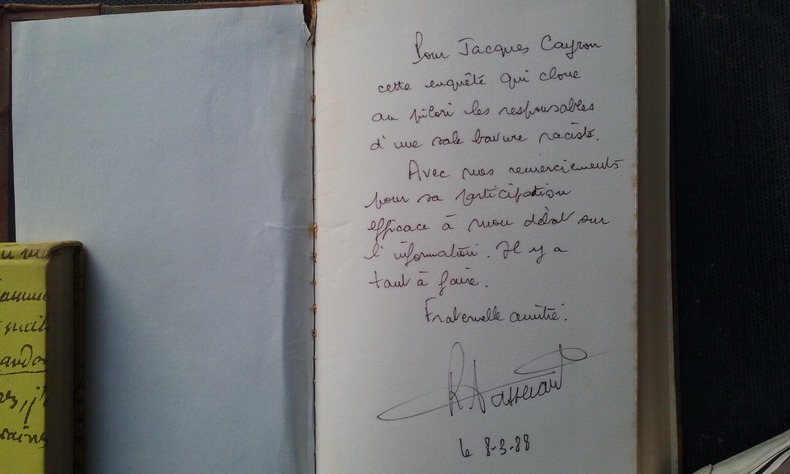 Pour Jacques Cayron
cette enquête qui cloue
au pilori les responsables
d'une sale bavure raciste.
Avec mes remerciements
pour sa participation
efficace à mon débat sur
l'information. Il y a
tant à faire.
Fraternelle amitié.
le 8-3-88